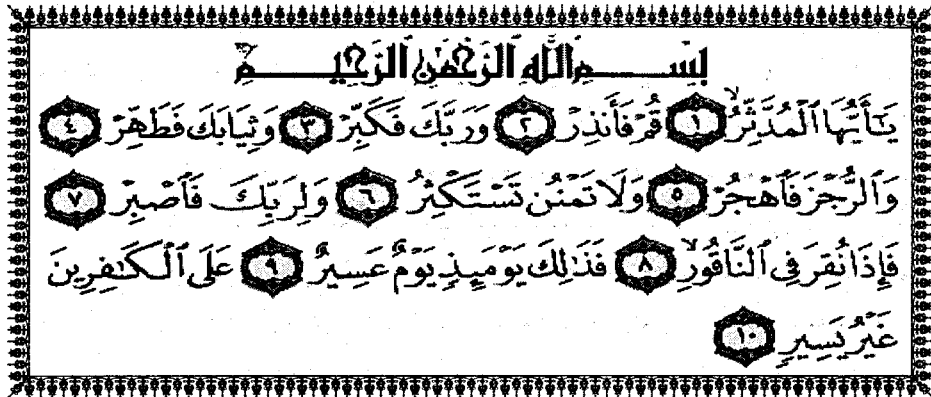 بِسْمِ ٱللَّهِ ٱلرَّحْمَٰنِ ٱلرَّحِيمِ
يَٰٓأَيُّهَا ٱلْمُدَّثِّرُ ۝١ قُمْ فَأَنذِرْ ۝٢ وَرَبَّكَ فَكَبِّرْ ۝٣ وَثِيَابَكَ فَطَهِّرْ ۝٤
وَٱلرُّجْزَ فَٱهْجُرْ ۝٥ وَلَا تَمْنُن تَسْتَكْثِرُ ۝٦ وَلِرَبِّكَ فَٱصْبِرْ ۝٧
فَإِذَا نُقِرَ فِى ٱلنَّاقُورِ ۝٨ فَذَٰلِكَ يَوْمَئِذٍ يَوْمٌ عَسِيرٌ ۝٩ عَلَى ٱلْكَٰفِرِينَ
غَيْرُ يَسِيرٍ ۝١٠